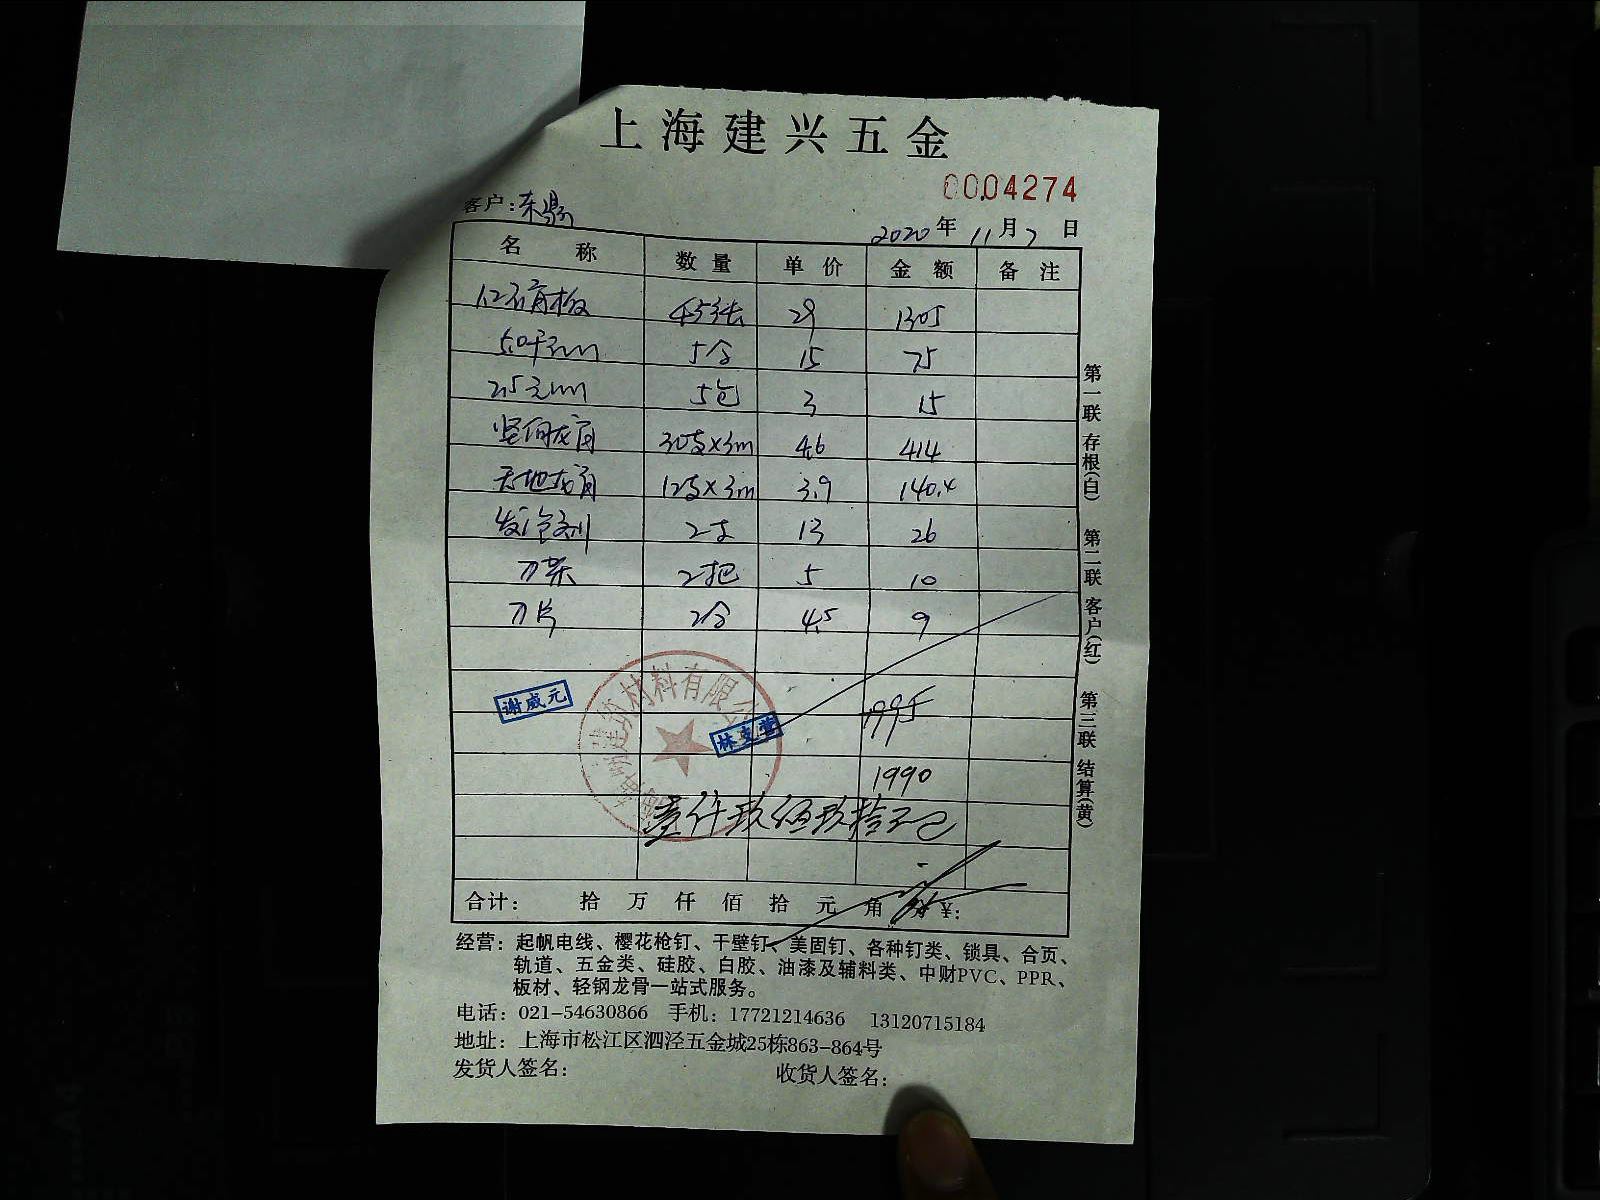 上海建兴五金
0004274
客户:东鼎
2020年11月7日
名 称 数 量 单 价 金 额 备 注
1.2石膏板 45张 29 1305
5.0干 5合 15 75
2.5 5包 3 15
竖向龙骨 30支×3m 4.6 414
天地龙骨 12支×3m 3.9 140.4
发泡剂 2支 13 26
刀架 2把 5 10
刀片 2合 4.5 9
谢威元
建筑材料有限公
林支
1995
1990
壹仟玖佰玖拾元
合计: 拾 万 仟 佰 拾 元 角 分 ¥:
第一联 存根(白) 第二联 客户(红) 第三联 结算(黄)
经营:起帆电线、樱花枪钉、干壁钉、美固钉、各种钉类、锁具、合页、
轨道、五金类、硅胶、白胶、油漆及辅料类、中财PVC、PPR、
板材、轻钢龙骨一站式服务。
电话:021-54630866 手机:17721214636 13120715184
地址:上海市松江区泗泾五金城25栋863-864号
发货人签名: 收货人签名: